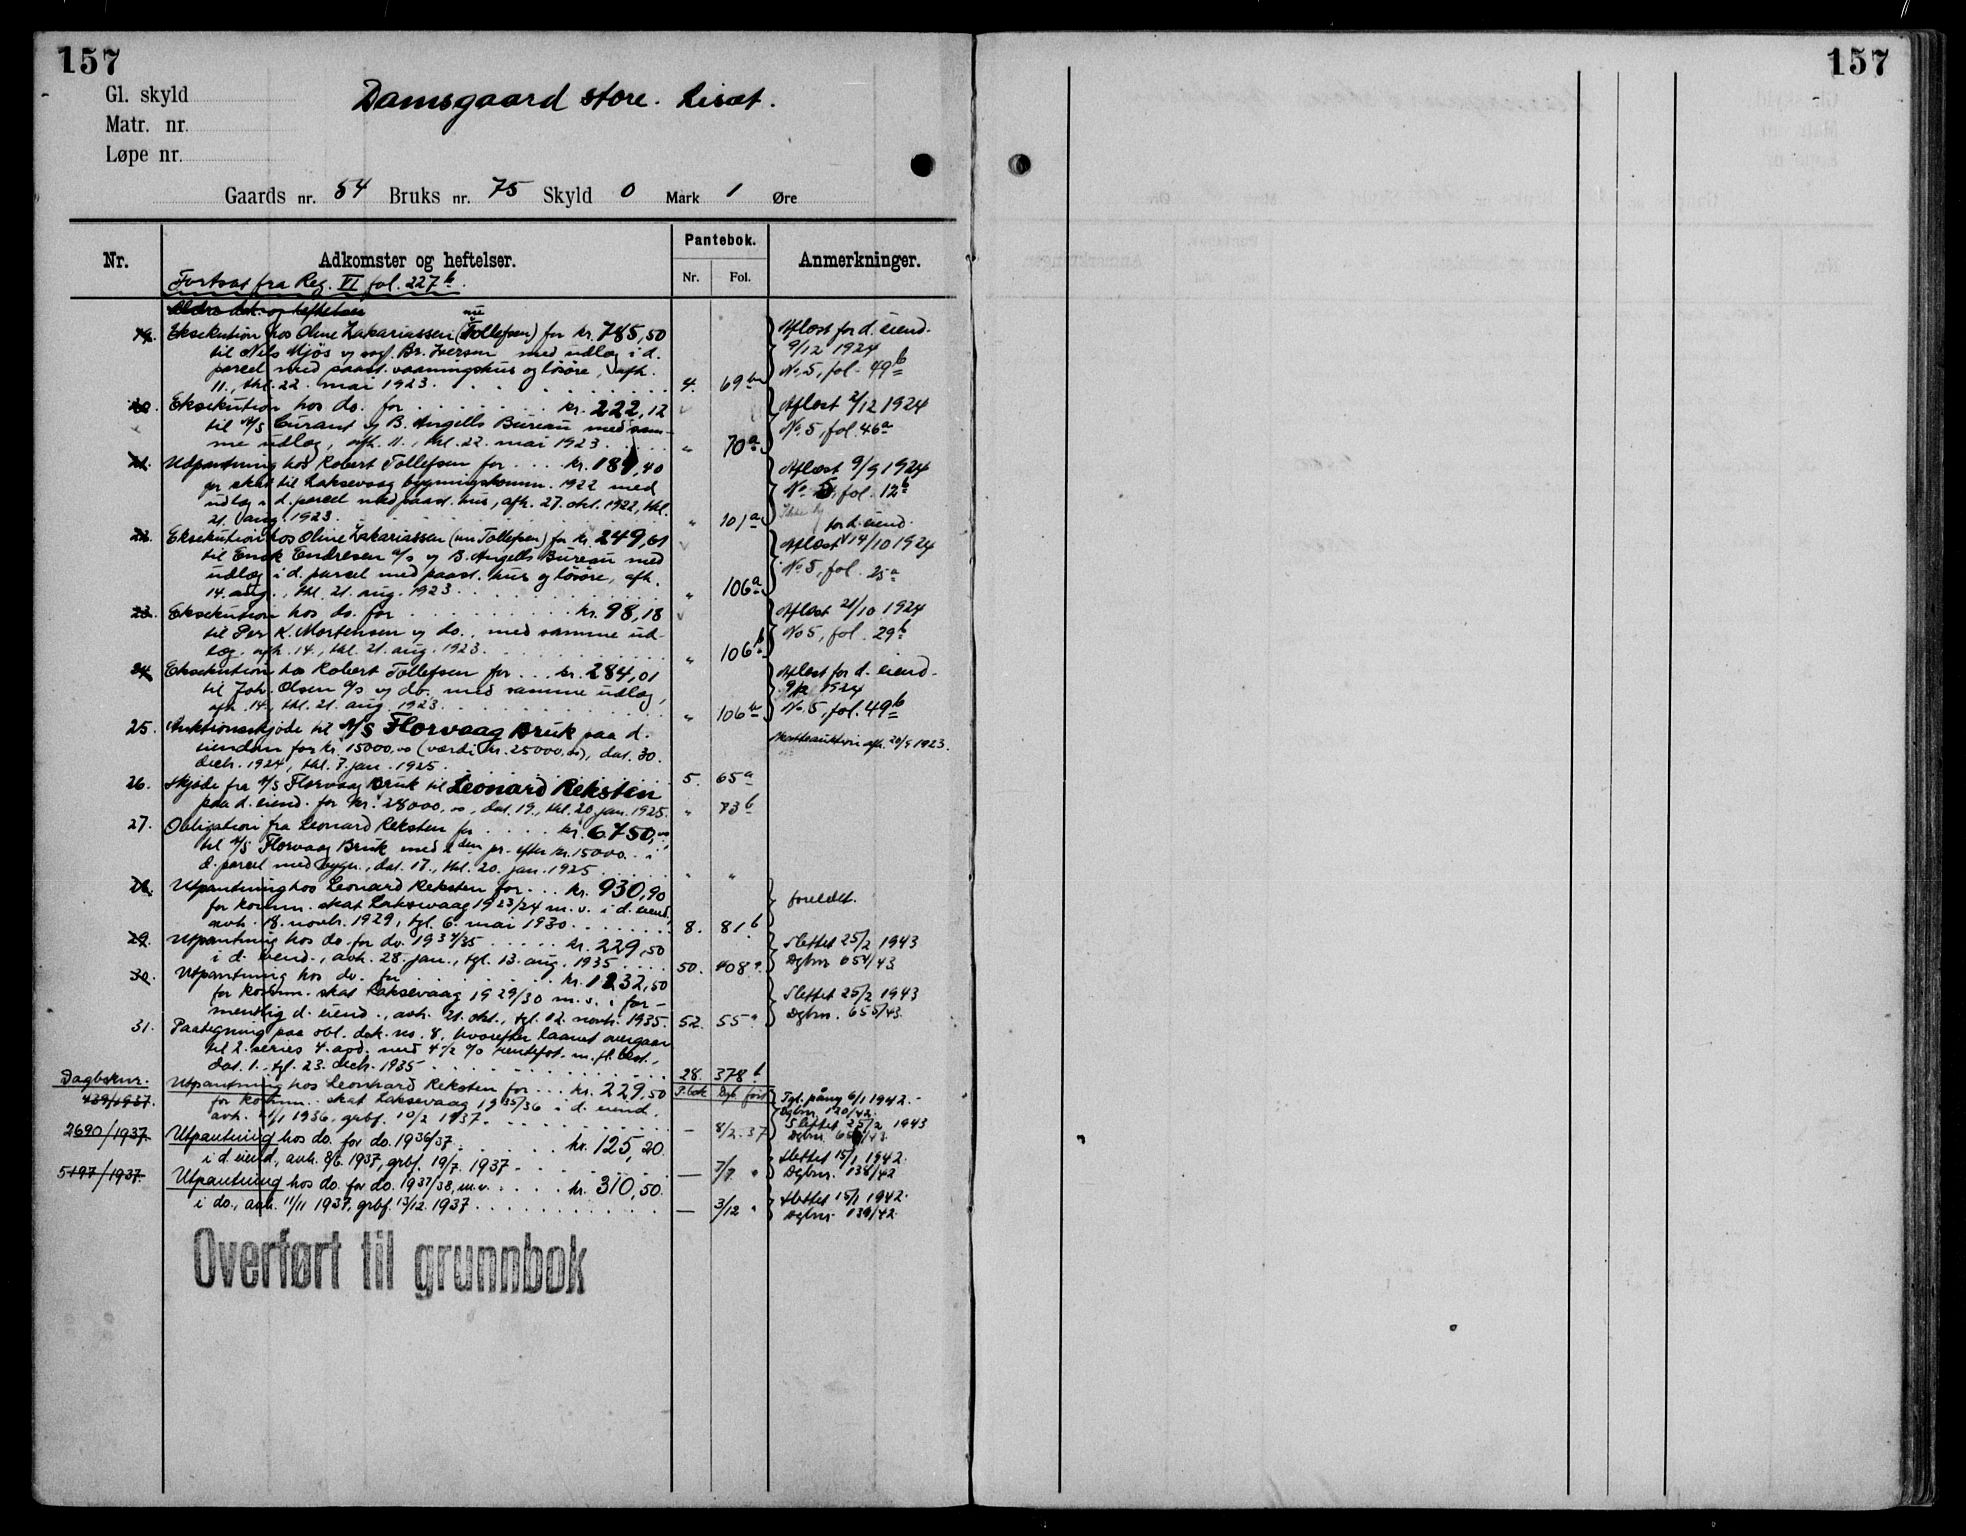 157
Gl. skyld
Matr. nr.
Løpe nr.
Damsgaard store. Lisæt.
Gaards nr. 54 Bruks nr. 75 Skyld 0 Mark 1 Øre
Nr. Adkomster og heftelser. Pantebok. Nr. Fol. Anmerkninger.
Fortsat fra Reg. VI fol. 227b.
Ældre dok. og heftelser
19. Eksekution hos Oline Zakariassen (nu Tollefsen) for kr. 785,50
til Nils Mjös og sagf. Br. Iversen med udlæg i d.
parcel med paast. vaaningshus og lösöre, afh.
11., thl. 22. mai 1923. 4. 69
Aflæst for d. eiend.
9/12 1924
No. 5, fol. 49b
20. Eksekution hos do. for kr. 222,12
til A/S Curant og B. Angells Bureau med sam-
me udlæg, afh. 11., thl. 22. mai 1923. " 70a
Aflæst 2/12 1924
No. 5, fol. 46a
21. Udpantning hos Robert Tollefsen for kr. 181,40
pr. skat til Laksevaag bygningskomm. 1922 med
udlæg i d. parcel med paast. hus, afh. 27. okt. 1922, thl.
21. aug. 1923. " 101a
Aflæst 9/9 1924
No. 5, fol. 12b
for d. eiend.
22. Eksekution hos Oline Zakariassen (nu Tollefsen) for kr. 249,61
til Ensk Endresen A/S og B. Angells Bureau med
udlæg i d. parcel med paast. hus og lösöre, afh.
14. aug., thl. 21. aug. 1923. " 106a
Aflæst 14/10 1924
No. 5, fol. 25a
23. Eksekution hos do. for kr. 98,18
til Per K. Mortensen og do., med samme ud-
læg, afh. 14., thl. 21. aug. 1923. " 106b
Aflæst 21/10 1924
No 5, fol. 29b
24. Eksekution hos Robert Tollefsen for kr. 284,01
til Joh. Olsen A/S og do. med samme udlæg,
afh. 14., thl. 21. aug. 1923. " 106b
Aflæst for d. eiend.
9/12 1924
No. 5, fol. 49b
25. Auktionsskjøde til A/S Florvaag Bruk paa d.
eiendom for kr. 15000,00 (værdi kr. 25000,00), dat. 30.
decb. 1924, thl. 7. jan. 1925. 5. 65a
afh. 20/9 1923.
26. Skjøde fra A/S Florvaag Bruk til Leonard Reksten
paa d. eiend. for kr. 28000,00, dat. 19., thl. 20. jan. 1925. " 73b
27. Obligation fra Leonard Reksten for kr. 6750,00
til A/S Florvaag Bruk med 2den pr. efter kr. 15000.- i
d. parcel med bygn., dat. 17., thl. 20. jan. 1925 " "
28. Utpantning hos Leonard Reksten for kr. 930,90
for komm. skat Laksevaag 1923/24 m.v. i d. eiend.,
avh. 18. novb. 1929, tgl. 6. mai 1930. 8. 81b
foreldet.
29. Utpantning hos do. for do. 1934/35 kr. 229,50
i d. eiend., avh. 28. jan., tgl. 13. aug. 1935. 50. 408a.
Slettet 25/2 1943
Dgbnr. 654/43
30. Utpantning hos do. for kr. 1232,50
for komm. skat Laksevaag 1929/30 m.v. i for-
mentlig d. eiend., avh. 21. okt., tgl. 12. novb. 1935. 52. 55a
Slettet 25/2 1943
Dgbnr. 655/43.
31. Paategning paa obl. dok. nr. 8, hvorefter laanet overgaar
til 2. series 4. avd. med 4 1/2 % rentefot. m. fl. best.,
dat. 1., tgl. 23. decb. 1935 28. 378b
Dagboknr. P.bok Dgb. ført
439/1937. Utpantning hos Leonhard Reksten for kr. 229,50
for komm. skat Laksevaag 1935/36 i d. eiend.
avh. 21/1 1936, grbf. 10/2 1937. — 8/2.37
Tgl. påny 6/1 1942.-
Dgbnr. 120/42.
Slettet 25/2 1943
2690/1937. Utpantning hos do. for do. 1936/37 kr. 125,20
i d. eiend., avh. 8/6 1937, grbf. 19/7 1937. — 7/7 "
Slettet 15/1 1942.
Dgbnr. 138/42
5197/1937. Utpantning hos do. for do. 1937/38, m.v. kr. 310,50.
i do., avh. 11/11 1937, grbf. 13/12 1937. — 3/12 "
Slettet 15/1 1942.
Dgbnr. 139/42.
Overført til grunnbok
157